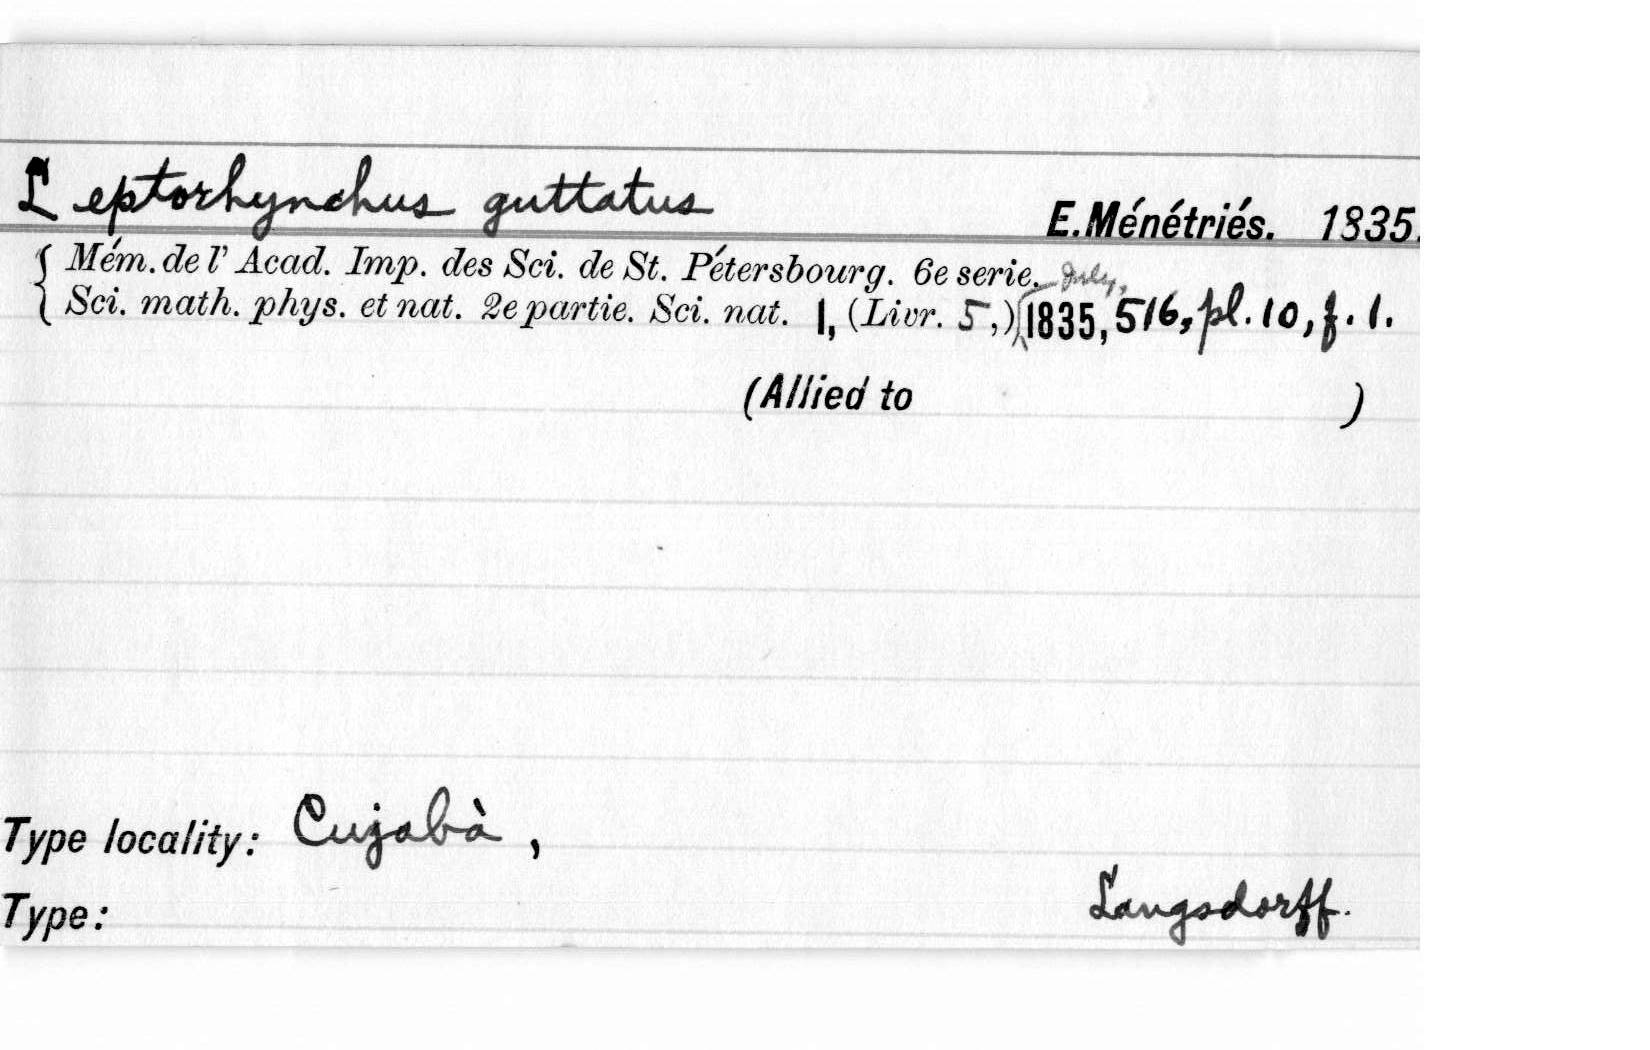 Leptorhynchus guttatus E. Ménétriés. 1835.
Mém. de l' Acad. Imp. des Sci. de St. Pétersbourg. 6e serie. July,
Sci. math. phys. et nat. 2e partie. Sci. nat. 1, (Livr. 5,) 1835, 516, pl. 10, f. 1.
(Allied to )
Type locality: Cujabà,
Langsdorff.
Type: